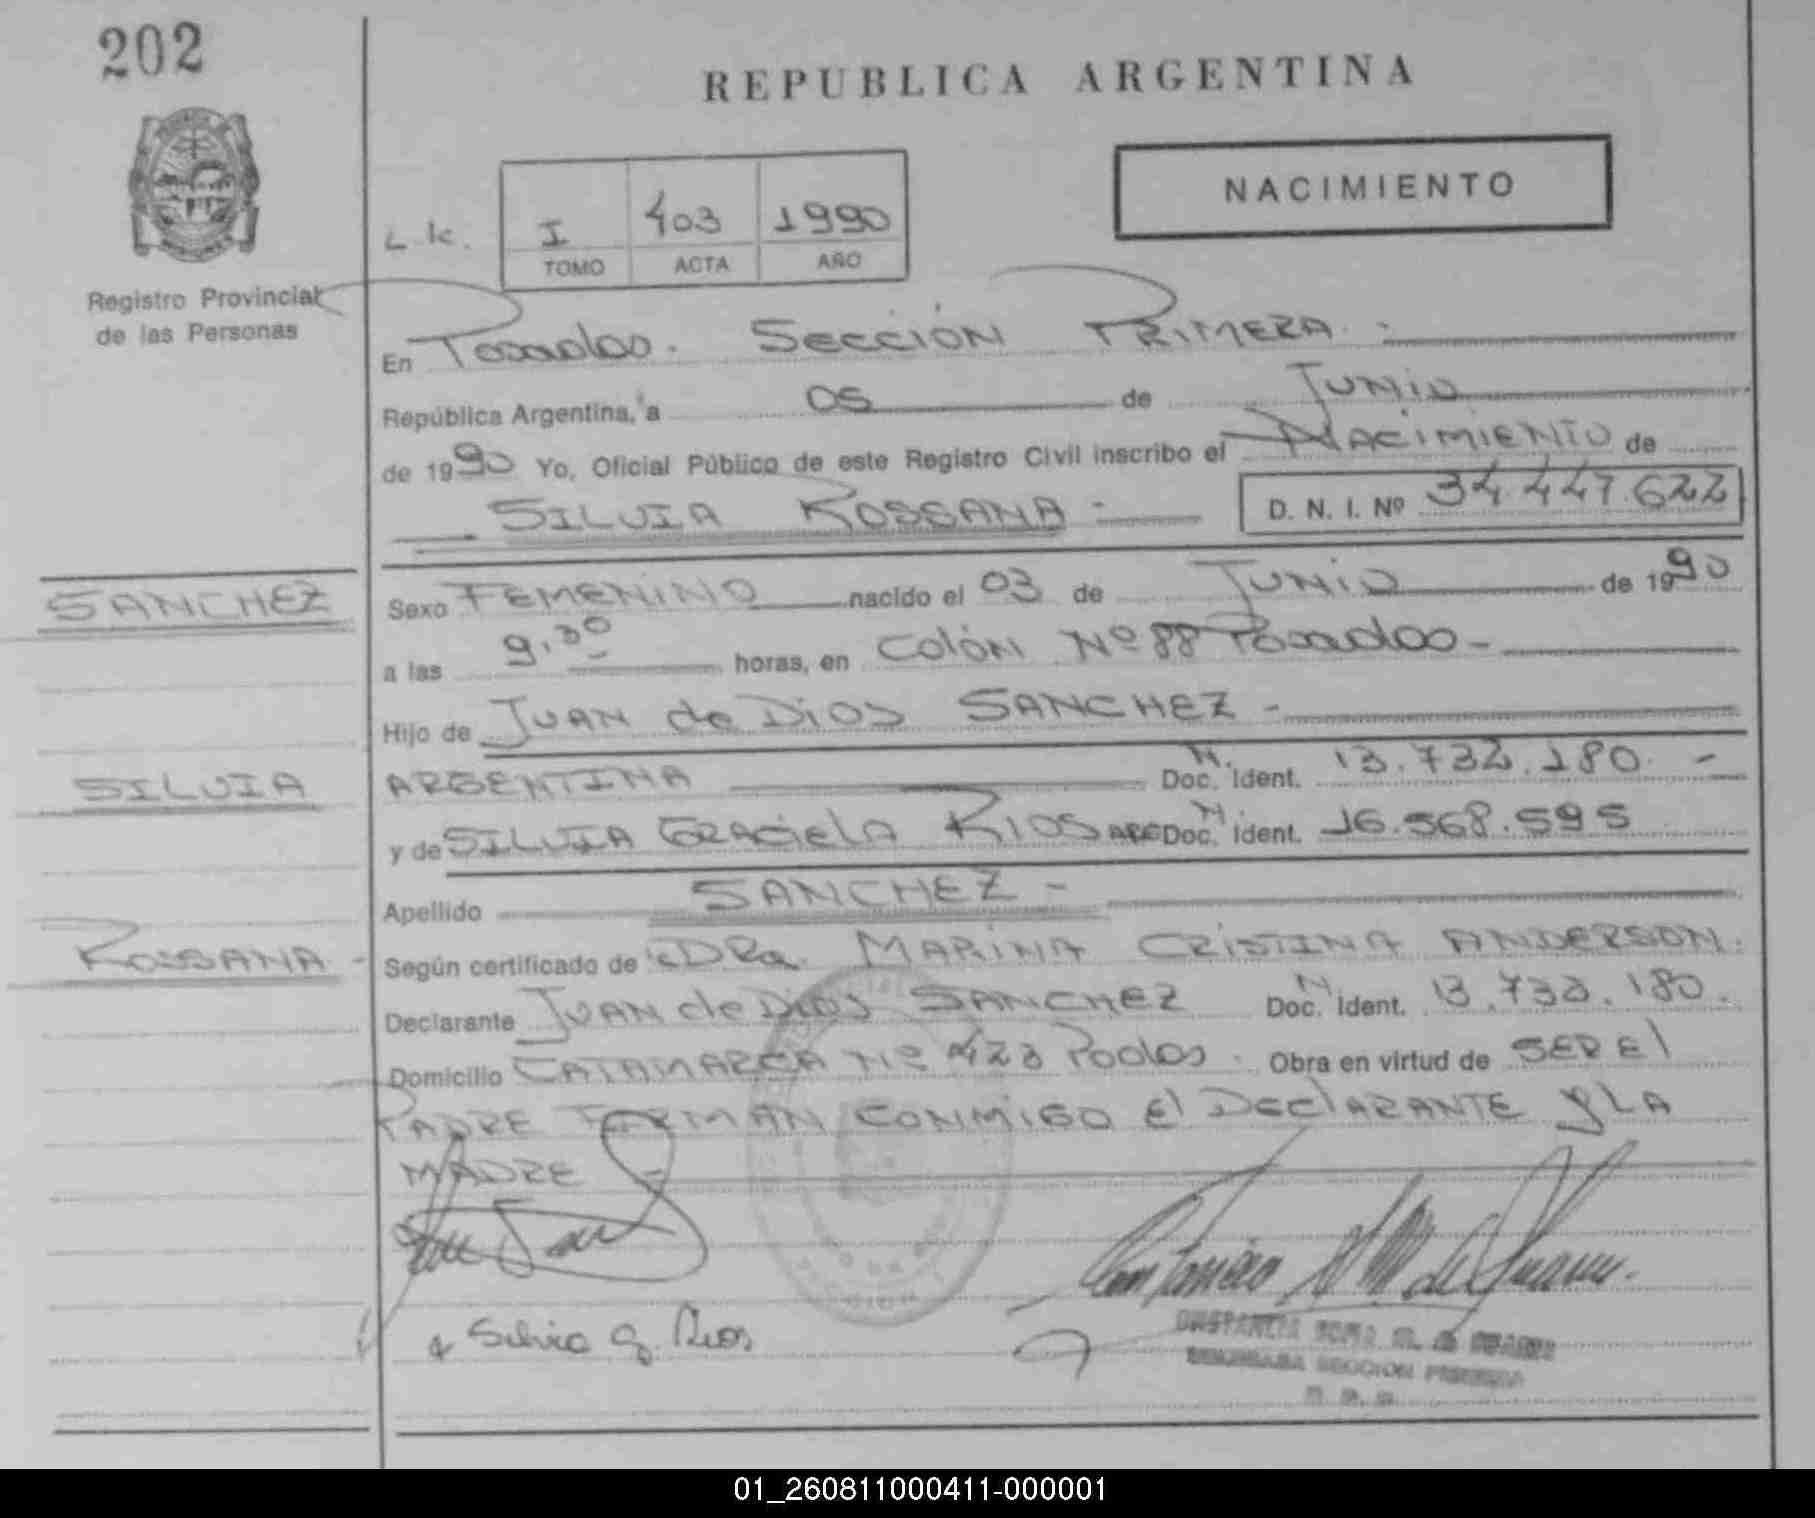 202
REPUBLICA ARGENTINA
NACIMIENTO
L. k.
I 403 1990
TOMO ACTA AÑO
Registro Provincial
de las Personas
En Posadas. Sección PRIMERA. -
República Argentina, a 05 de JUNIO
de 1990 Yo, Oficial Público de este Registro Civil inscribo el NACIMIENTO de
SILVIA ROSSANA - D. N. I. Nº 34.447.622
SANCHEZ
Sexo FEMENINO nacido el 03 de JUNIO de 1990
a las 9,30 horas, en Colón Nº 88 Posadas -
Hijo de JUAN de Dios SANCHEZ -
SILVIA
ARGENTINA Doc. N. Ident. 13.732.180. -
y de SILVIA GRACIELA RIOS ARG Doc. N Ident. 16.568.595
Apellido SANCHEZ -
ROSSANA -
Según certificado de DRa. MARINA CRISTINA ANDERSON.
Declarante JUAN de Dios SANCHEZ Doc. N Ident. 13.732.180.
Domicilio CATAMARCA Nº 423 Podas. Obra en virtud de SER El
PADRE FIRMAN CONMIGO El DEClARANTE y LA
MADRE -
Silvia G. Rios
SECCION PRIMERA
01_260811000411-000001